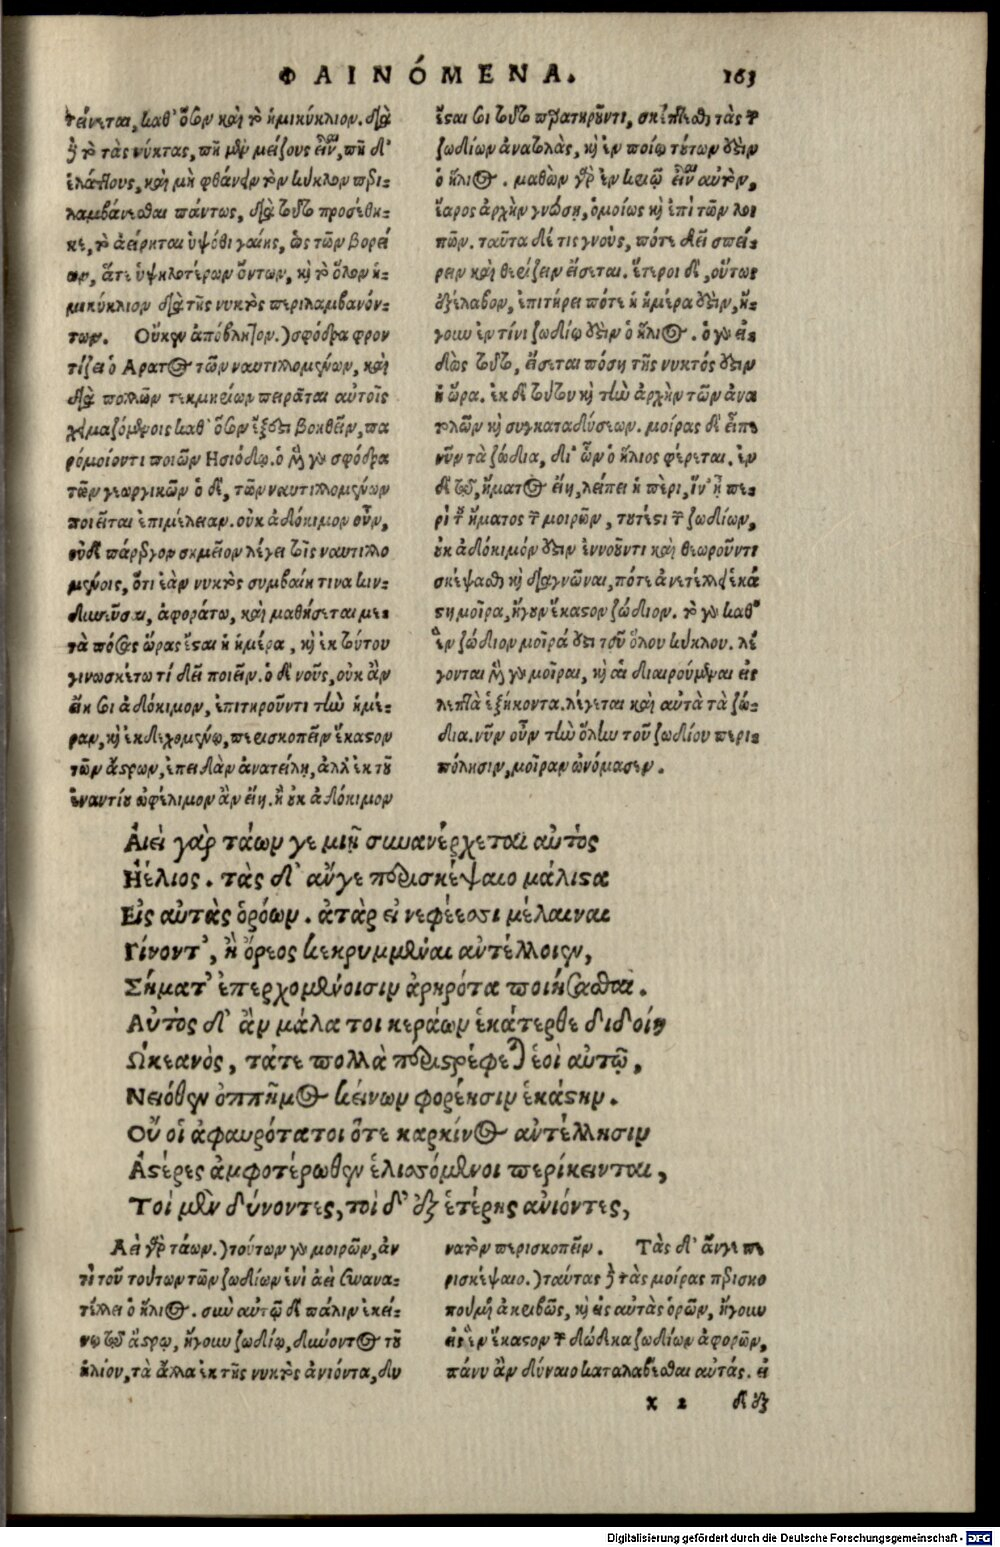 ΦΑΙΝΌΜΕΝΑ. 163
τείνεται, καθ' ὅσον καὶ τὸ ἡμικύκλιον. διὰ
ἢ τὸ τὰς νύκτας, πῆ μὲν μείζους εἶναι, πῆ δ'
ἐλάττους, καὶ μὴ φθάνειν τὸν κύκλον περι-
λαμβάνεσθαι πάντως, διὰ τοῦτο προσέθη-
κε, τὸ ἀείρηται ὑψόθι γαίης, ὡς τῶν βορεί
ων, ἅτε ὑψηλοτέρων ὄντων, καὶ τὸ ὅλον ἡ-
μικύκλιον διὰ τῆς νυκτὸς περιλαμβανόν-
των. Οὔκεν ἀπόβλητον.) σφόδρα φρον
τίζει ὁ Αρατος τῶν ναυτιλλομένων, καὶ
διὰ πολλῶν τεκμηρίων πειρᾶται αὐτοῖς
χειμαζομένοις καθ' ὅσον ἔξεστι βοηθεῖν, πα
ρόμοιόν τι ποιῶν Ησιόδῳ. ὁ μὲν γὰρ σφόδρα
τῶν γεωργικῶν ὁ δὲ, τῶν ναυτιλλομένων
ποιεῖται ἐπιμέλειαν. οὐκ ἀδόκιμον οὖν,
οὐδὲ πάρεργον σημεῖον λέγει τοῖς ναυτιλλο
μένοις, ὅτι ἐὰν νυκτὸς συμβαίη τινα κιν-
δυνεῦσαι, ἀφοράτω, καὶ μαθήσεται με-
τὰ πόσας ὥρας ἔσται ἡ ἡμέρα, καὶ ἐκ τούτου
γινωσκέτω τί δεῖ ποιεῖν. ὁ δὲ νοῦς, οὐκ ἂν
εἴη σοι ἀδόκιμον, ἐπιτηροῦντι τὴν ἡμέ-
ραν, καὶ ἐκδεχομένῳ, περισκοπεῖν ἕκαστον
τῶν ἄστρων, ἐπειδὰν ἀνατείλῃ, ἀλλ' ἐκ τοῦ
ἐναντίου ὠφέλιμον ἂν εἴη. ἢ οὐκ ἀδόκιμον
ἔσται σοι τοῦτο παρατηροῦντι, σκέπτεσθαι τὰς τῶν
ζωδίων ἀνατολὰς, καὶ ἐν ποίῳ τούτων ἐστὶν
ὁ ἥλιος. μαθὼν γὰρ ἐν κριῷ εἶναι αὐτὸν,
ἔαρος ἀρχὴν γνώσῃ, ὁμοίως καὶ ἐπὶ τῶν λοι
πῶν. ταῦτα δέ τις γνοὺς, πότε δεῖ σπεί-
ρειν καὶ θερίζειν εἴσεται. ἕτεροι δὲ, οὕτως
ἐξέλαβον, ἐπιτήρει πότε ἡ ἡμέρα ἐστὶν, ἤ-
γουν ἐν τίνι ζωδίῳ ἐστὶν ὁ ἥλιος. ὁ γὰρ εἰ-
δὼς τοῦτο, εἴσεται πόση τῆς νυκτός ἐστιν
ἡ ὥρα. ἐκ δὲ τούτου καὶ τὴν ἀρχὴν τῶν ἀνα
τολῶν καὶ συγκαταδύσεων. μοίρας δὲ εἶπε
νῦν τὰ ζώδια, δι' ὧν ὁ ἥλιος φέρεται. ἐν
δὲ τῷ, ἤματος εἴη, λείπει ἡ περί, ἵν' ᾖ πε-
ρὶ τοῦ ἤματος τῶν μοιρῶν, τουτέστι τῶν ζωδίων,
οὐκ ἀδόκιμόν ἐστιν ἐννοοῦντι καὶ θεωροῦντι
σκέψασθαι καὶ διαγνῶναι, πότε ἀνατέλλει ἑκά
στη μοῖρα, ἤγουν ἕκαστον ζώδιον. τὸ γὰρ καθ'
ἓν ζώδιον μοῖρά ἐστι τοῦ ὅλου κύκλου. λέ
γονται μὲν γὰρ μοῖραι, καὶ αἱ διαιρούμεναι εἰς
λεπτὰ ἑξήκοντα. λέγεται καὶ αὐτὰ τὰ ζώ-
δια. νῦν οὖν τὴν ὅλην τοῦ ζωδίου περι-
πόλησιν, μοῖραν ὠνόμασεν.
Αἰεὶ γὰρ τάων γε μιῇ συνανέρχεται αὐτὸς
Ἠέλιος. τὰς δ' αὖγε περισκέψαιο μάλιστα
Εἰς αὐτὰς ὁρόων. ἀτὰρ εἰ νεφέεσσι μέλαιναι
Γίνοντ', ἢ ὄρεος κεκρυμμέναι αὐτέλλοιεν,
Σήματ' ἐπερχομένοισιν ἀρηρότα ποιήσασθαι.
Αὐτὸς δ' ἂν μάλα τοι κεράων ἑκάτερθε διδοίη
Ὠκεανὸς, τάτε πολλὰ περιστρέφεται ἑοῖ αὐτῷ,
Νειόθεν ὁππῆμος κείνων φορέησιν ἑκάστην.
Οὔ οἱ ἀφαυρότατοι ὅτε καρκίνος αὐτέλλησιν
Ἀστέρες ἀμφοτέρωθεν ἑλισσόμενοι περίκεινται,
Τοὶ μὲν δύνοντες, τοὶ δ' ἐξ ἑτέρης ἀνιόντες,
Αεὶ γὰρ τάων.) τούτων γὰρ μοιρῶν, ἀν
τὶ τοῦ τούτων τῶν ζωδίων ἑνὶ ἀεὶ συνανα-
τέλλει ὁ ἥλιος. σὺν αὐτῷ δὲ πάλιν ἐκεί-
νῳ τῷ ἄστρῳ, ἤγουν ζωδίῳ, δύνοντος τοῦ
ἡλίου, τὰ ἄλλα ἐκ τῆς νυκτὸς ἀνιόντα, δυ
νατὸν περισκοπεῖν. Τὰς δ' ἄνγε πε
ρισκέψαιο.) ταύτας ἢ τὰς μοίρας περισκο
ποῦμεν ἀκριβῶς, καὶ εἰς αὐτὰς ὁρῶν, ἤγουν
εἰς ἓν ἕκαστον τῶν δώδεκα ζωδίων ἀφορῶν,
πάνυ ἂν δύναιο καταλαβέσθαι αὐτάς. εἰ
x 2 δὲ ἐξ
Digitalisierung gefördert durch die Deutsche Forschungsgemeinschaft - DFG